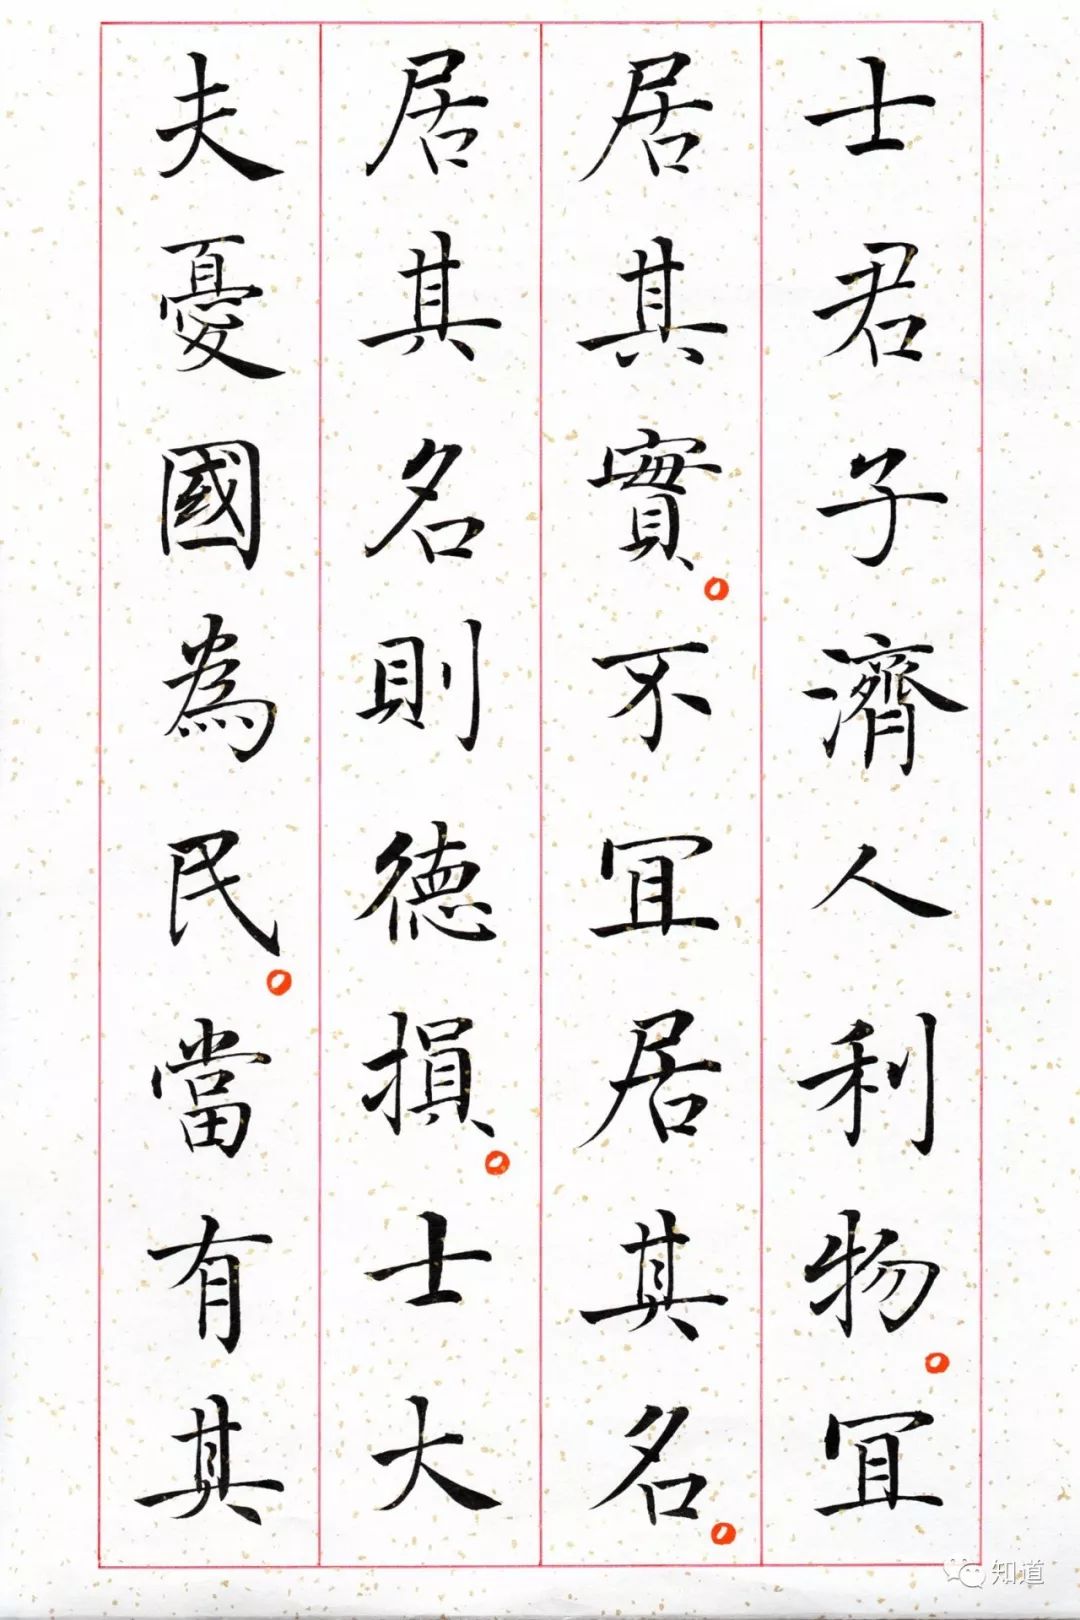 士君子濟人利物。宜
居其實。不宜居其名。
居其名則德損。士大
夫憂國為民。當有其
知道